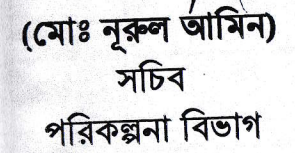 (মোঃ নূরুল আমিন)
সচিব
পরিকল্পনা বিভাগ